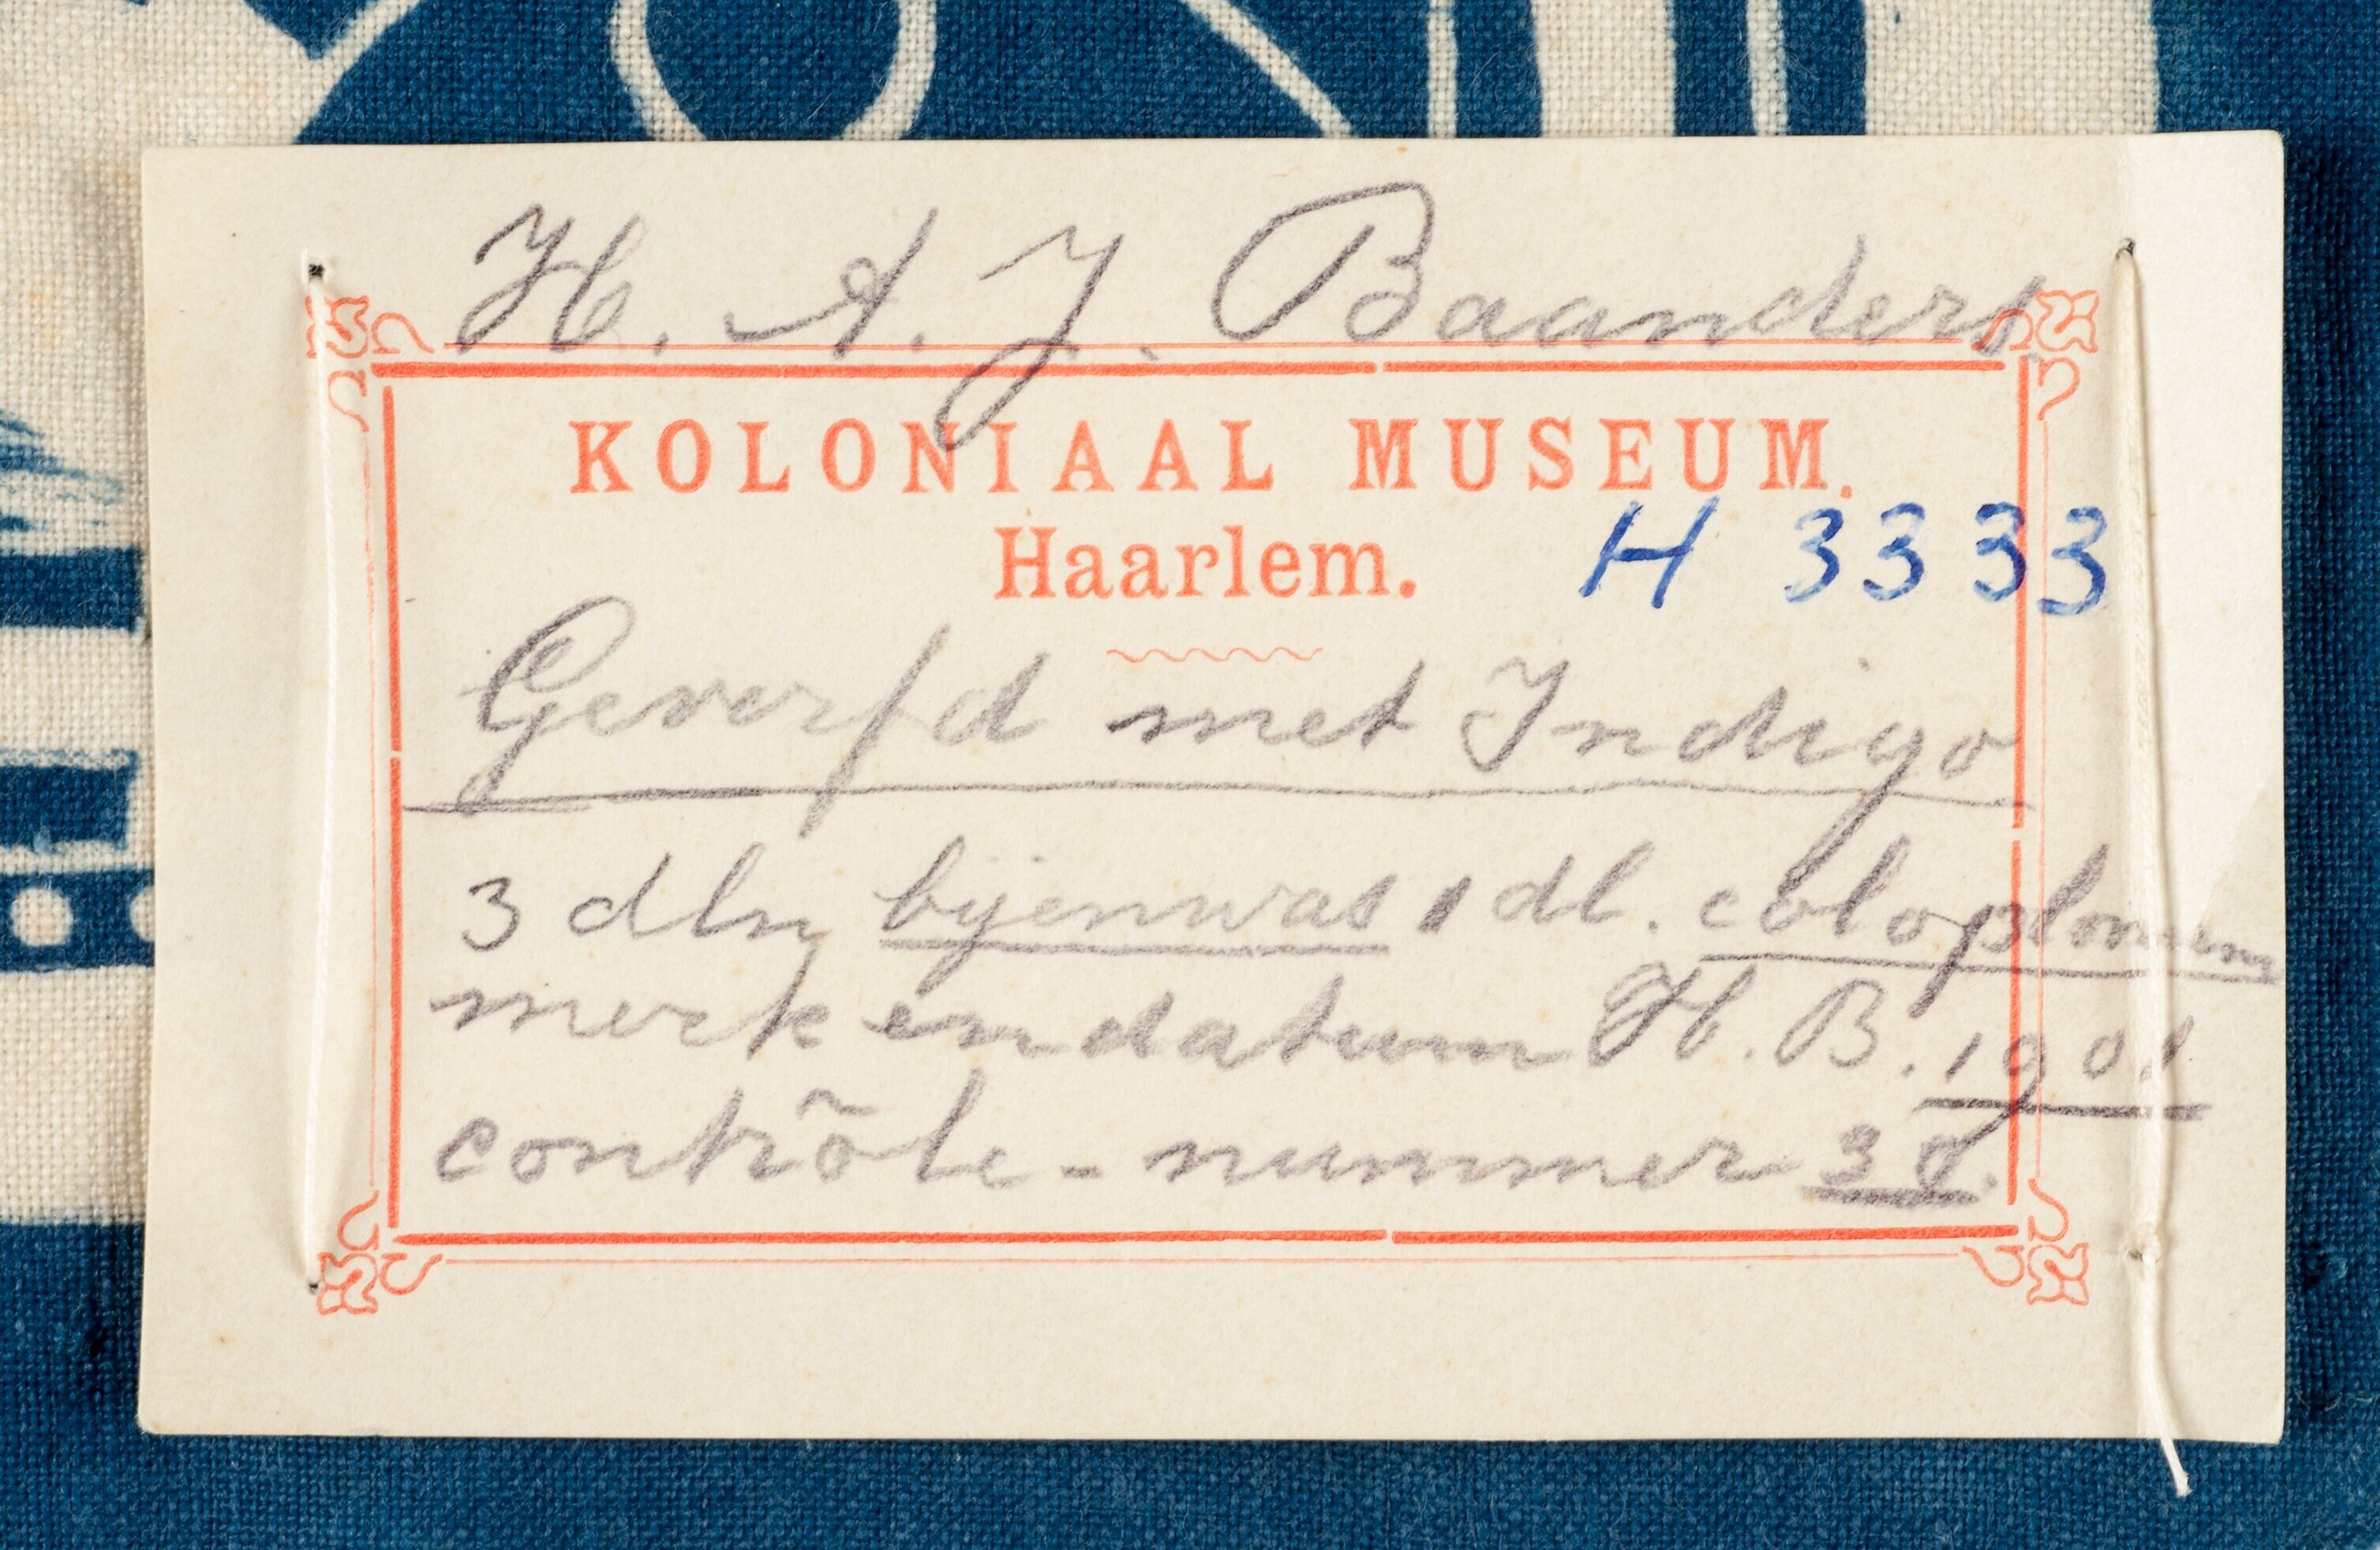 H. A. J. Baanders
KOLONIAAL MUSEUM.
Haarlem.
H 3333
Geverfd met Indigo
3 dln bijenwas 1 dl. colophonium
merk en datum H. B. 1901
contrôle - nummer